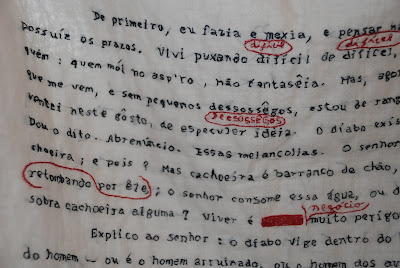 De primeiro, eu fazia e mexia, e pensar nã
difícel difícel
Possuíz os prazos. Vivi puxando difícil de difícel,
quém : quem mói no asp'ro , não fantasêia. Mas, ago
que me vem, e sem pequenos dessossêgos, estou de rang
DESOSSÊGOS
ventei neste gôsto, de especular idéia. O diabo exis
Dou o dito. Abrenúncio. Essas melancolias. O senhor
choeira ; e pois ? Mas cachoeira é barranco de chão,
retombando por êle ; o senhor consome essa água, ou d
negócio
sobra cachoeira alguma ? Viver é muito perigo
Explico ao senhor : o diabo vige dentro do
do homem — ou é o homem arruinado, ou o homem dos av